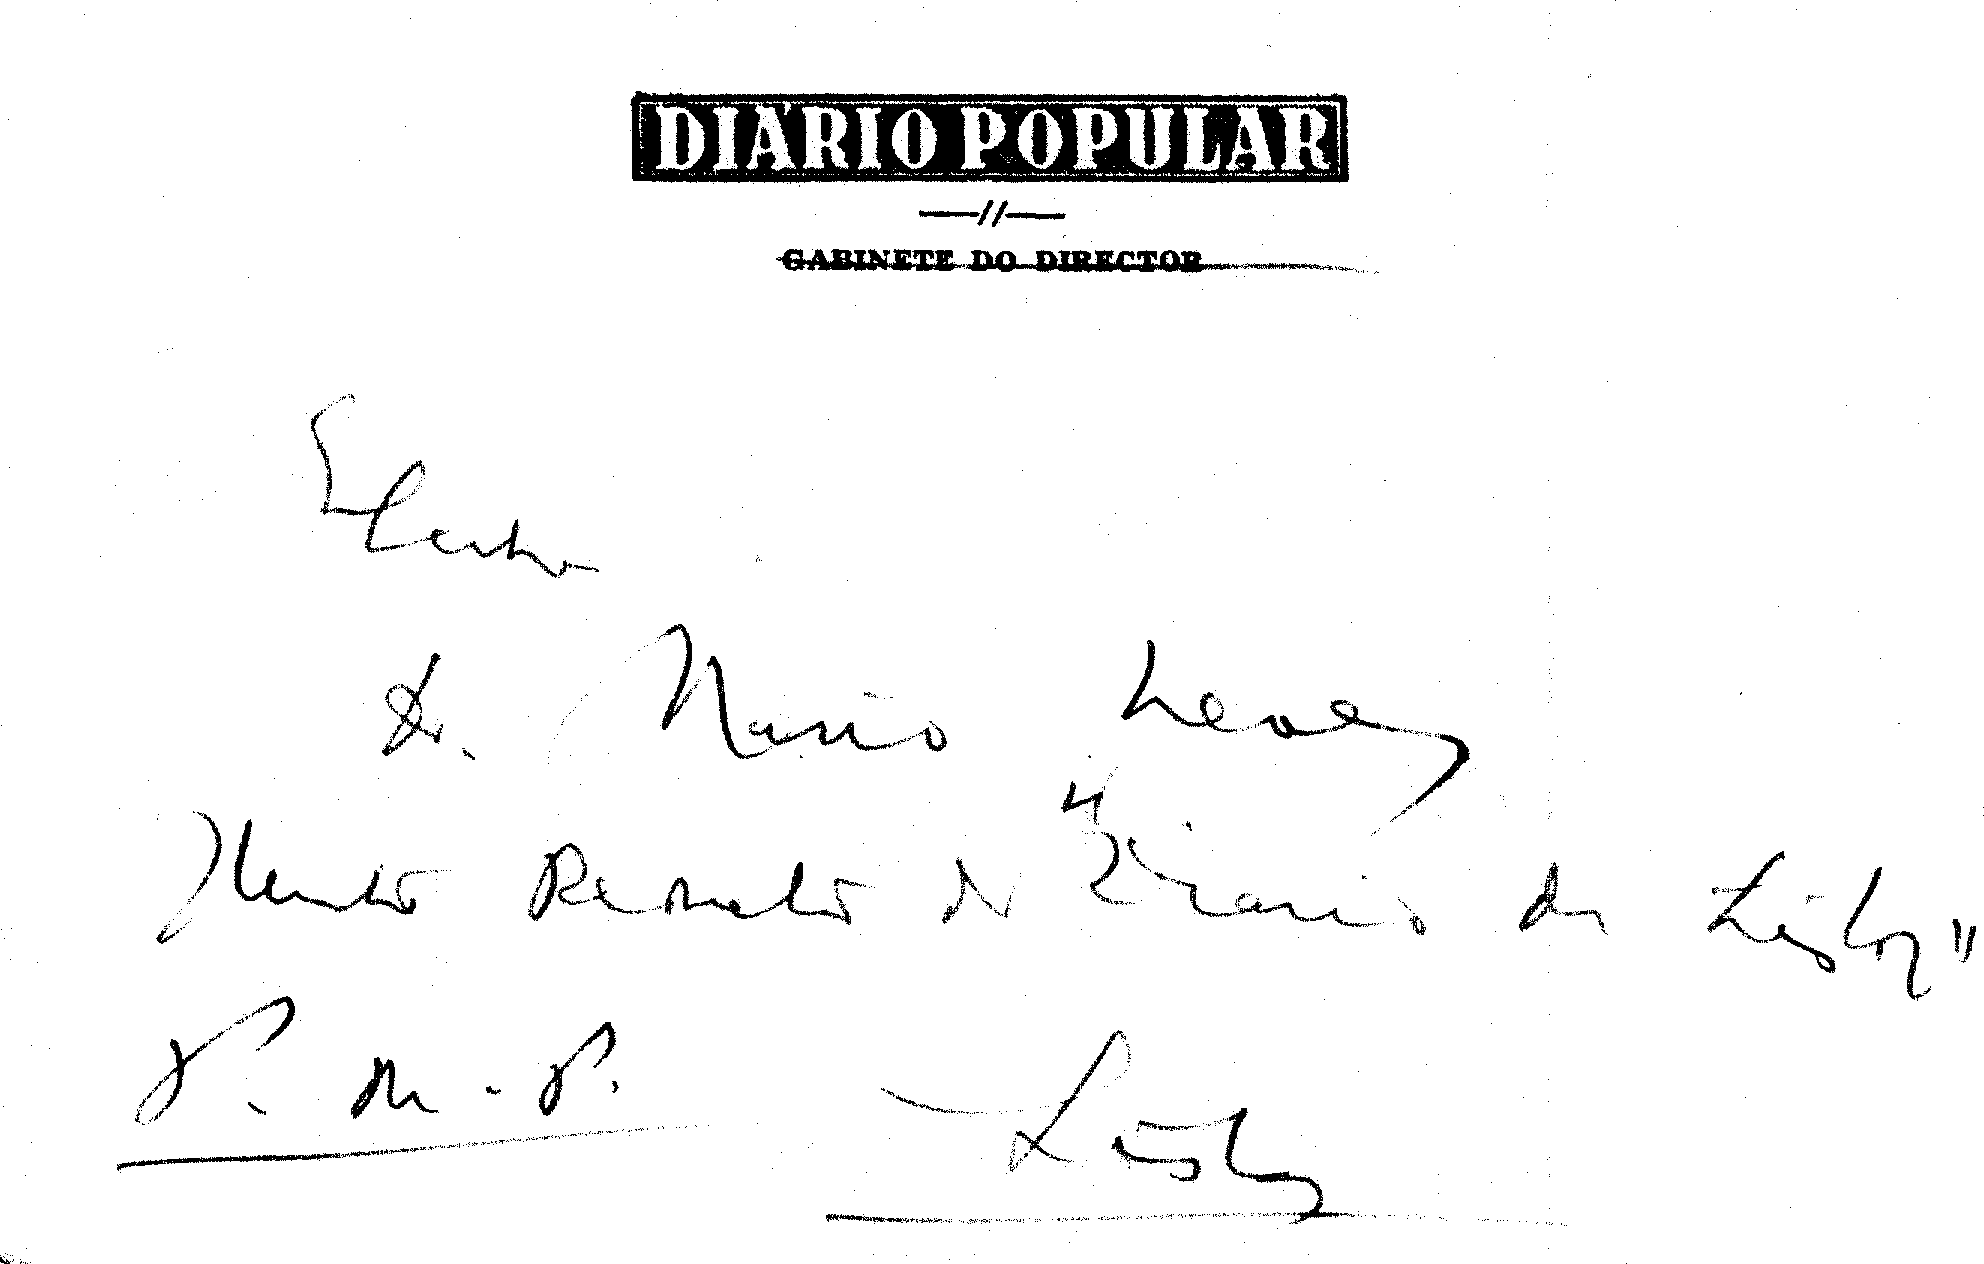 DIÁRIO POPULAR
GABINETE DO DIRECTOR
Dr. Mario Neves
Ilustre Redactor do "Diario de Lisboa"
P. M. P.
Lisboa